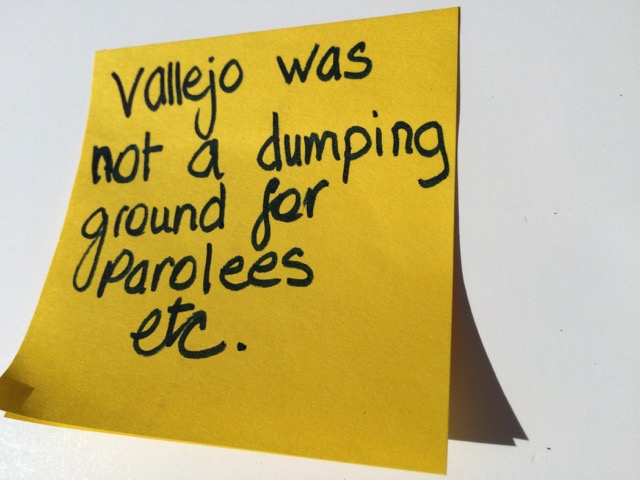 Vallejo was
not a dumping
ground for
parolees
etc.